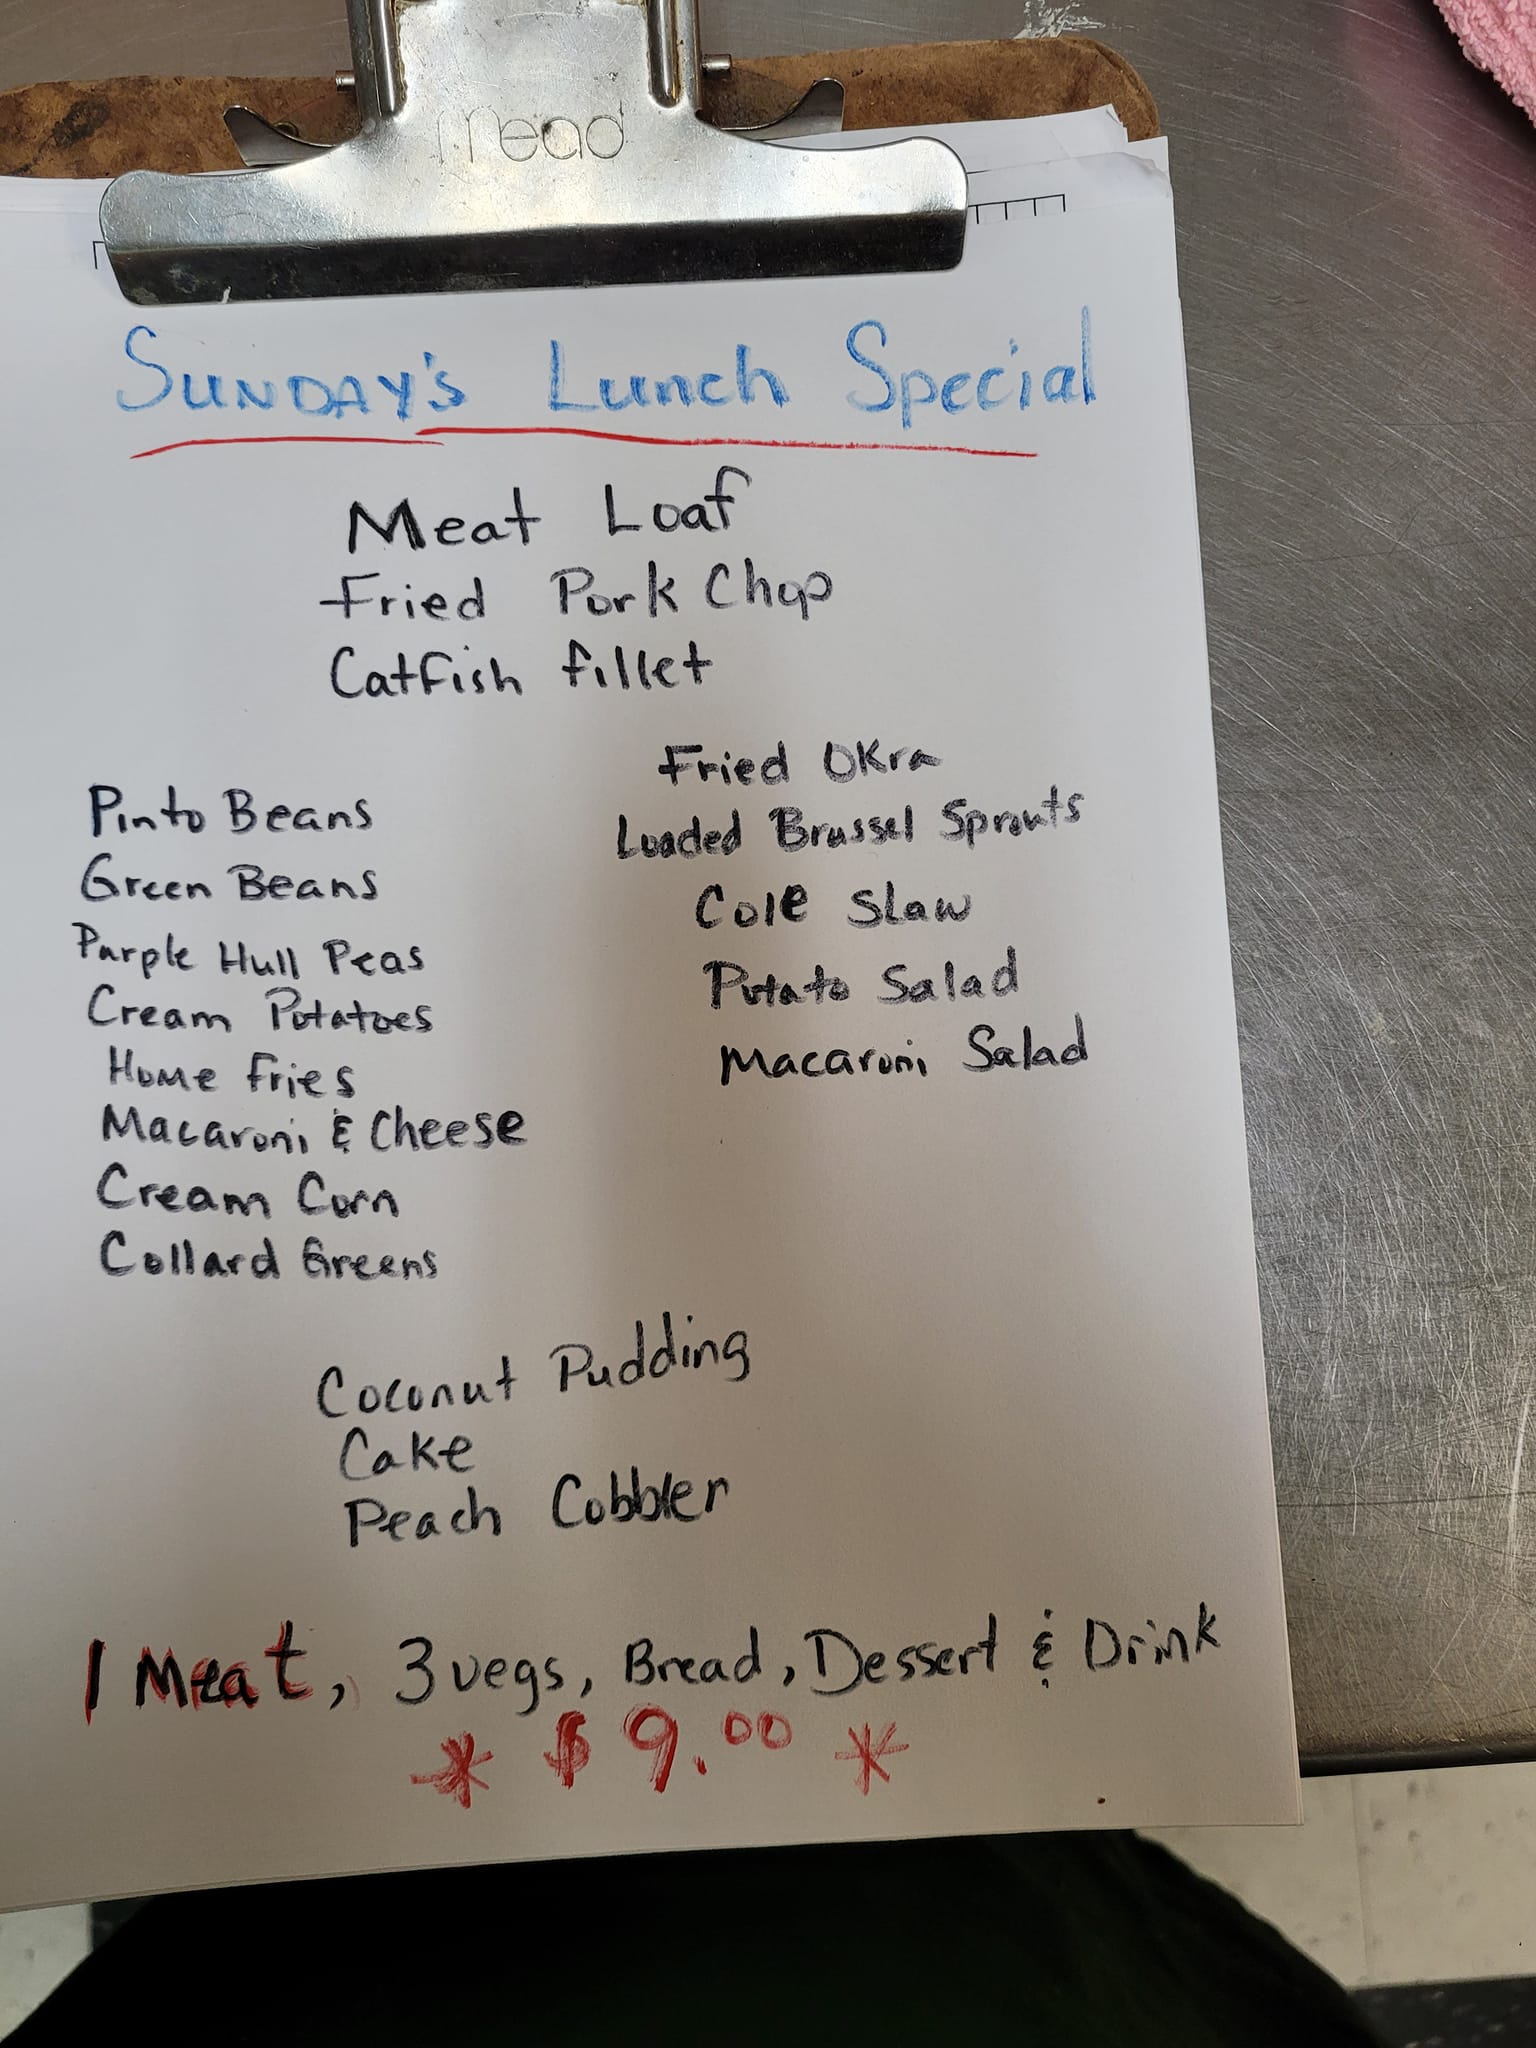 mead
SUNDAY's Lunch Special
Meat Loaf
Fried Pork Chop
Catfish fillet
Pinto Beans
Green Beans
Purple Hull Peas
Cream Potatoes
Home fries
Macaroni & Cheese
Cream Corn
Collard Greens
Fried Okra
Loaded Brussel Sprouts
Cole Slaw
Potato Salad
Macaroni Salad
Coconut Pudding
Cake
Peach Cobbler
1 Meat, 3 vegs, Bread, Dessert & Drink
* $9.00 *